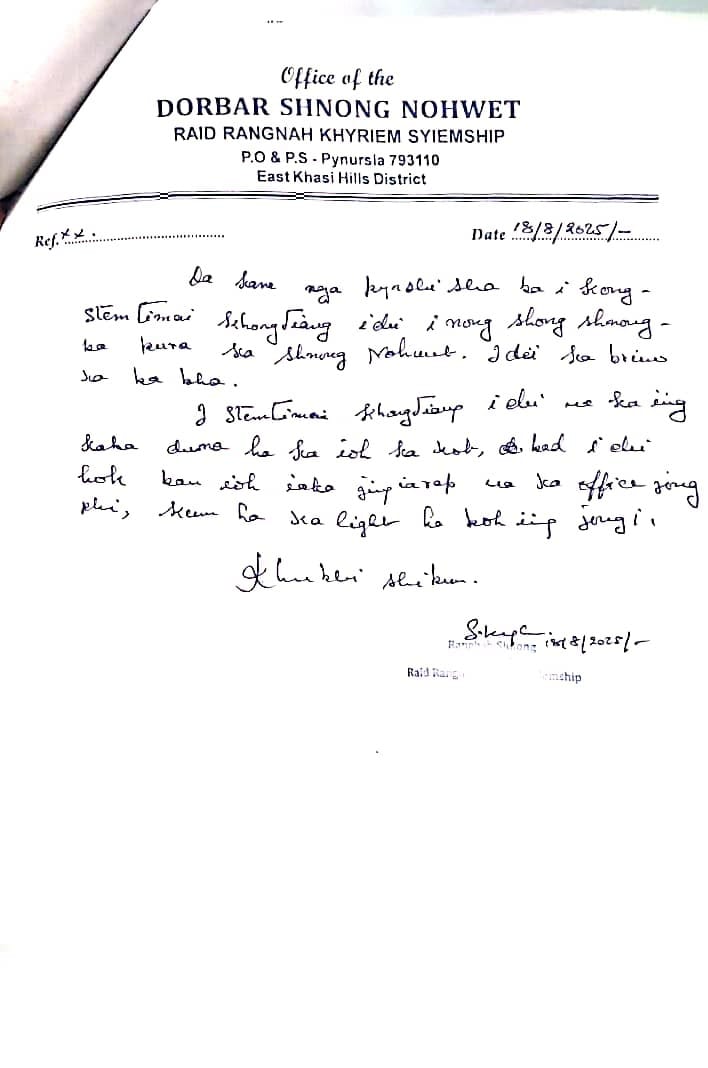 Office of the
DORBAR SHNONG NOHWET
RAID RANGNAH KHYRIEM SYIEMSHIP
P.O & P.S - Pynursla 793110
East Khasi Hills District
Ref. xx. Date 18/8/2025/-
Da kane nga pynshisha ba i kong-
Stem Timai Khongjiang i dei i nong shong shnong-
ba kura ka shnong Nohwet. I dei ka briew
ka ba bha.
I Stem Timai i dei na ka iing
kaba duna ha ka ioh ka kot, bad i dei
hok ban ioh iaka jingiarap na ka office jong
phi, kum ha ka light ha koh iing jong i.
Khublei shikun.
18/8/2025/-
Shnong
Raid Rang mship